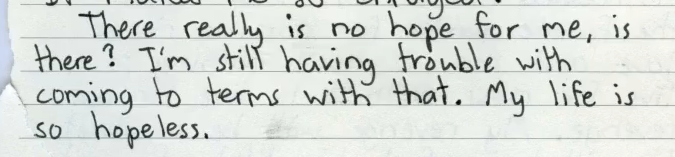 There really is no hope for me, is
there? I'm still having trouble with
coming to terms with that. My life is
so hopeless.